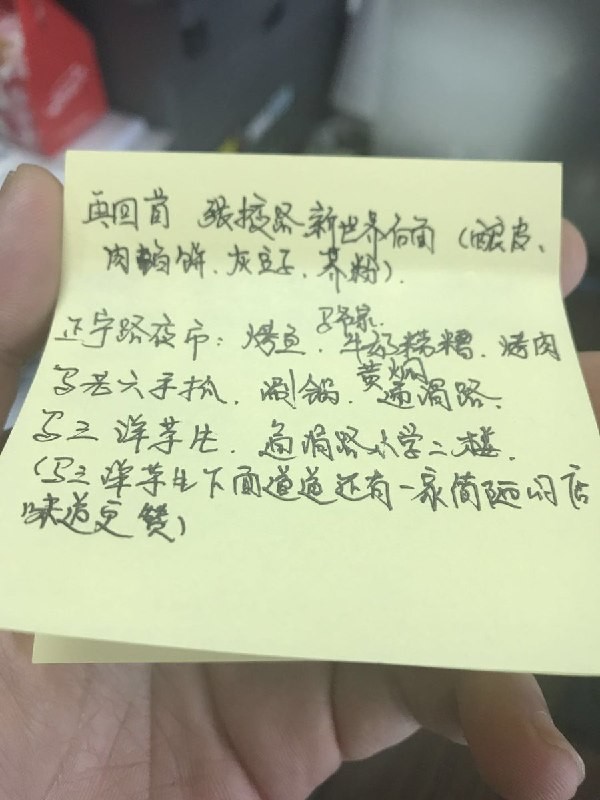 再回首 张掖路新世界后面（酿皮、
肉夹饼、灰豆子、荞粉）.
马爷家.
正宁路夜市：烤鱼．牛奶醪糟．烤肉
黄焖
马老六手抓．涮锅．通渭路．
马三洋芋片．通渭路小学二楼．
（马三洋芋片下面道道还有一家简陋的店
味道更赞）